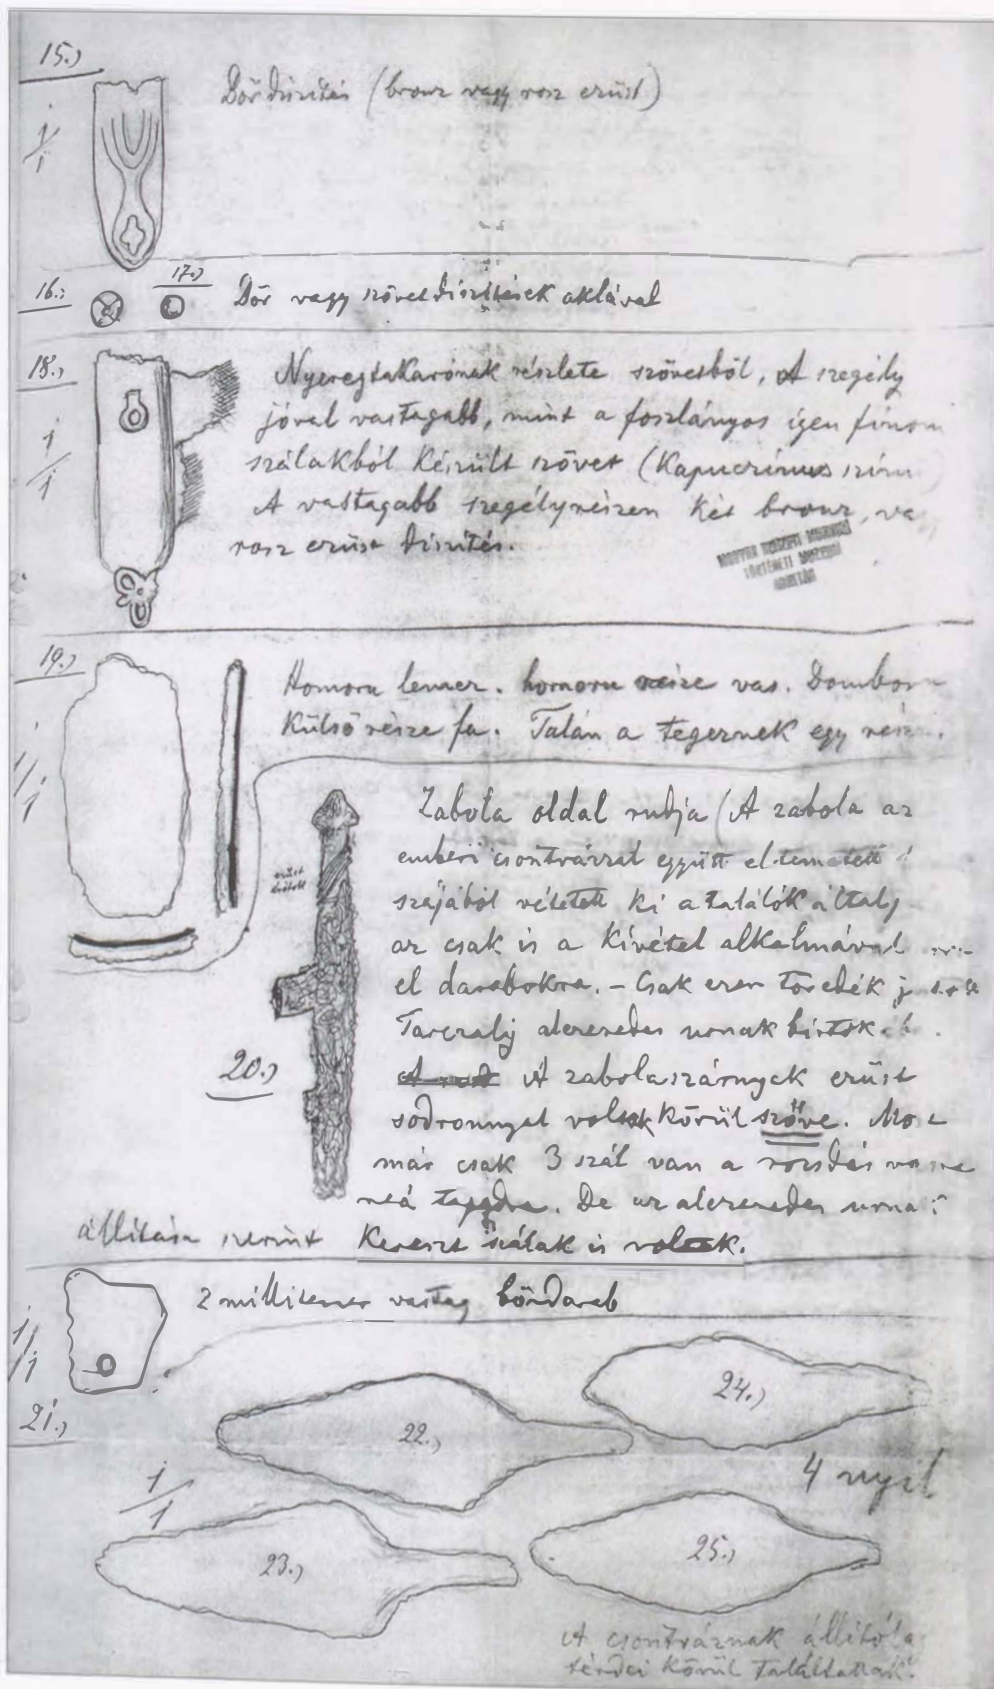 15.)
1/1
Bőrdiszités (bronz vagy rosz ezüst)
16.) 17.) Bőr vagy szövetdiszitések aklával
18.)
1/1
Nyeregtakarónak részlete szövetből, A szegély
jóval vastagabb, mint a foszlányos igen finom
szálakból készült szövet (Kapuczinus szinü
A vastagabb szegélyrészen két bronz, va
rosz ezüst diszités.
MAGYAR NEMZETI MÚZEUM
TÖRTÉNETI MÚZEUM
ADATTÁR
19.)
1/1
Homoru lemez. homoru része vas. Domboru
Külső része fa. Talán a tegeznek egy rész
Zabola oldal rudja (A zabola az
emberi csontvázzal együtt eltemetett
szájából vétetett ki a találók által,
az csak is a kivétel alkalmával
el darabokra. - Csak ezen töredék
Tarczaly alezredes urnak birtok
A zabolaszárnyak ezüst
sodronnyal voltak körül szőve.
már csak 3 szál van a rozsdás
reá tapadva. De az alezredes urnak
állitása szerint Kereszt szálak is voltak.
ezüst
20.)
2 millimeter vastag bőrdarab
1/1
21.)
22.)
24.)
4 nyil
1/1
23.)
25.)
A csontváznak állitóla
térdei körül találtattak.